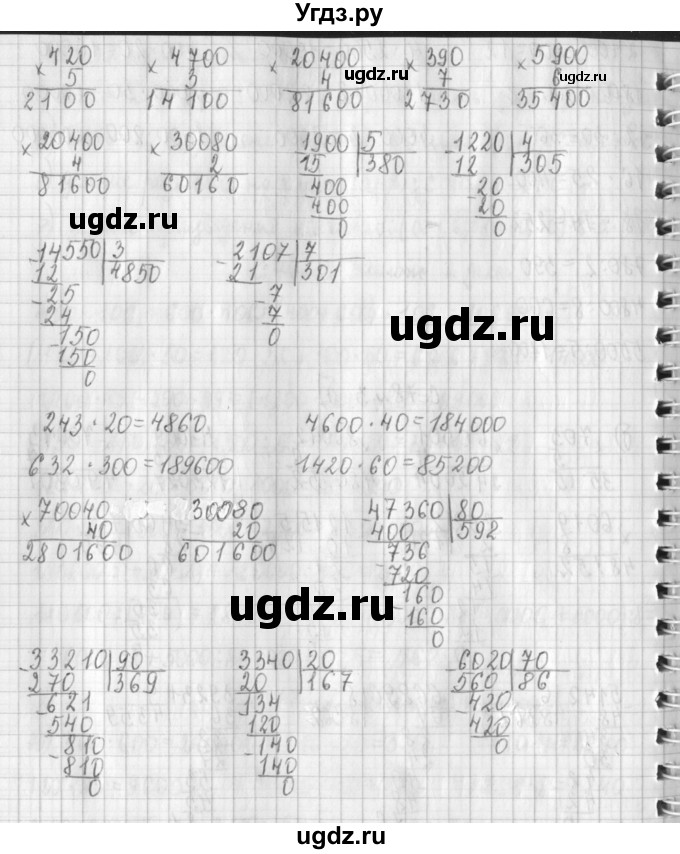 Угдз.ру
× 420 × 4700 × 20400 × 390 × 5900
5 3 4 7 6
2100 14100 81600 2730 35400
ugdz.ru ugdz.ru
× 20400 × 30080 1900 | 5 - 1220 | 4
4 2 15 | 380 12 | 305
81600 60160 400 - 20
400 20
0 0
ugdz.ru
- 14550 | 3 - 2107 | 7
12 | 4850 21 | 301
- 25 - 7
24 7
- 150 0
150
0
ugdz.ru
243 · 20 = 4860 4600 · 40 = 184000
632 · 300 = 189600 1420 · 60 = 85200
× 70040 30080 - 47360 | 80
40 20 400 | 592
2801600 601600 - 736
720
- 160
160
0
ugdz.ru
- 33210 | 90 3340 | 20 - 6020 | 70
270 | 369 20 | 167 560 | 86
- 621 - 134 - 420
540 120 420
- 810 - 140 0
810 140
0 0
ugdz.ru